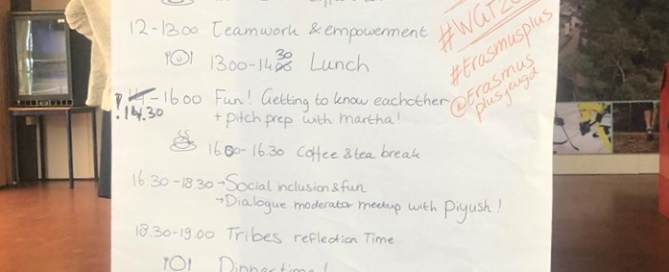 12-13.00 Teamwork & empowerment
#WGT20
#Erasmusplus
@Erasmus
plusjeugd
1300-14.30 Lunch
! 14-16.00 Fun! Getting to know eachother
14.30 + pitch prep with martha!
16.00-16.30 Coffee & tea break
16.30-18.30 → Social inclusion & fun
→ Dialogue moderator meetup with Piyush!
18.30-19.00 Tribes reflection Time
Dinnertime!